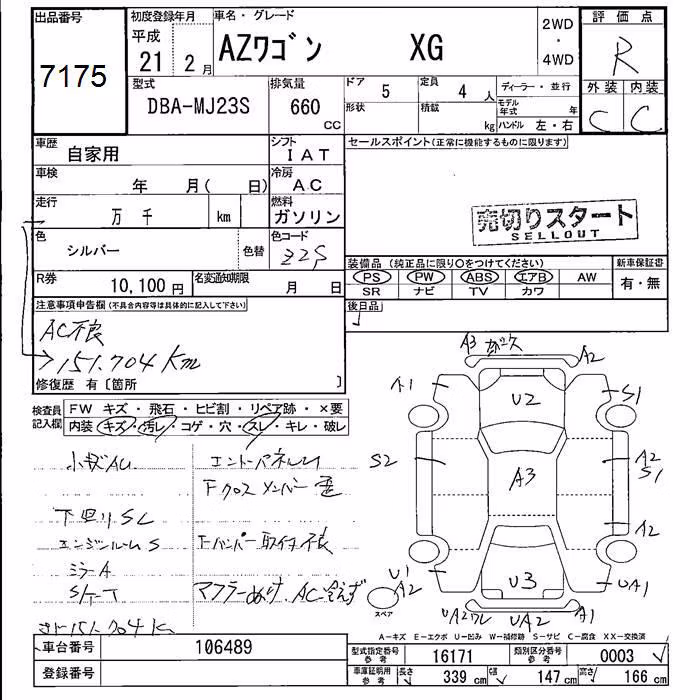 出品番号
7175
初度登録年月
平成
21 2 月
車名・グレード
AZワゴン XG
2WD
・
4WD
評価点
R
外装 内装
C C
型式
DBA-MJ23S
排気量
660 CC
ドア 5
定員 4 人
ディーラー・並行
形状
積載 kg
モデル年式 年
ハンドル 左・右
車歴
自家用
シフト
IAT
セールスポイント(正常に機能するものに限ります)
車検
年 月( 日)
冷房
AC
走行
万 千 km
燃料
ガソリン
売切りスタート
SELLOUT
色
シルバー
色替
色コード
Z2S
装備品 (純正品に限り○をつけてください)
新車保証書
PS PW ABS エアB AW
有・無
SR ナビ TV カワ
R券
10,100円
名変通知期限
月 日
後日品
注意事項申告欄(不具合内容等は具体的に記入して下さい)
AC不良
151.704Km
修復歴 有〔箇所 〕
検査員記入欄
FW キズ・飛石・ヒビ割・リペア跡・×要
内装 キズ・汚レ・コゲ・穴・スレ・キレ・破レ
小キズAU
下回りSC
エンジンルームS
ミラーA
Fクロスメンバー歪
Fバンパー取付不良
AC冷えず
A3
A2
U2
S1
S2
A3
A2
S1
A2
U1
A2
スペア
U3
UA1
UA2
A1
A－キズ E－エクボ U－凹み W－補修跡 S－サビ C－腐食 XX－交換済
車台番号
106489
登録番号
型式指定番号
参考
16171
類別区分番号
参考
0003
車庫証明用
参考
長さ
339 cm
幅
147 cm
高さ
166 cm